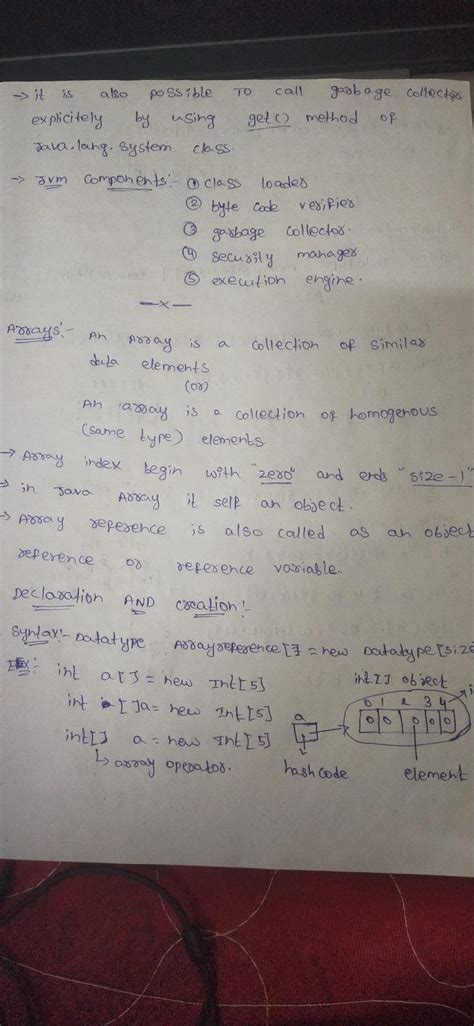 → it is also possible TO call garbage collector
explicitely by using get() method of
Java.lang.System class.
→ Jvm components:- ① class loader
② byte code verifier
③ garbage collector.
④ security manager
⑤ execution engine.
—x—
Arrays:- An Array is a collection of similar
data elements
(or)
An array is a collection of homogenous
(same type) elements
→ Array index begin with "zero" and ends "size-1"
→ in Java Array it self an object.
→ Array reference is also called as an object
reference or reference variable.
Declaration AND creation:-
Syntax:- Datatype Arrayreference[] = new Datatype[size
Ex: int a[] = new Int[5] int[] object
int []a = new Int[5] a 0 1 2 3 4
int[] a = new Int[5] 0 0 0 0 0
↳ array operator. hashcode element